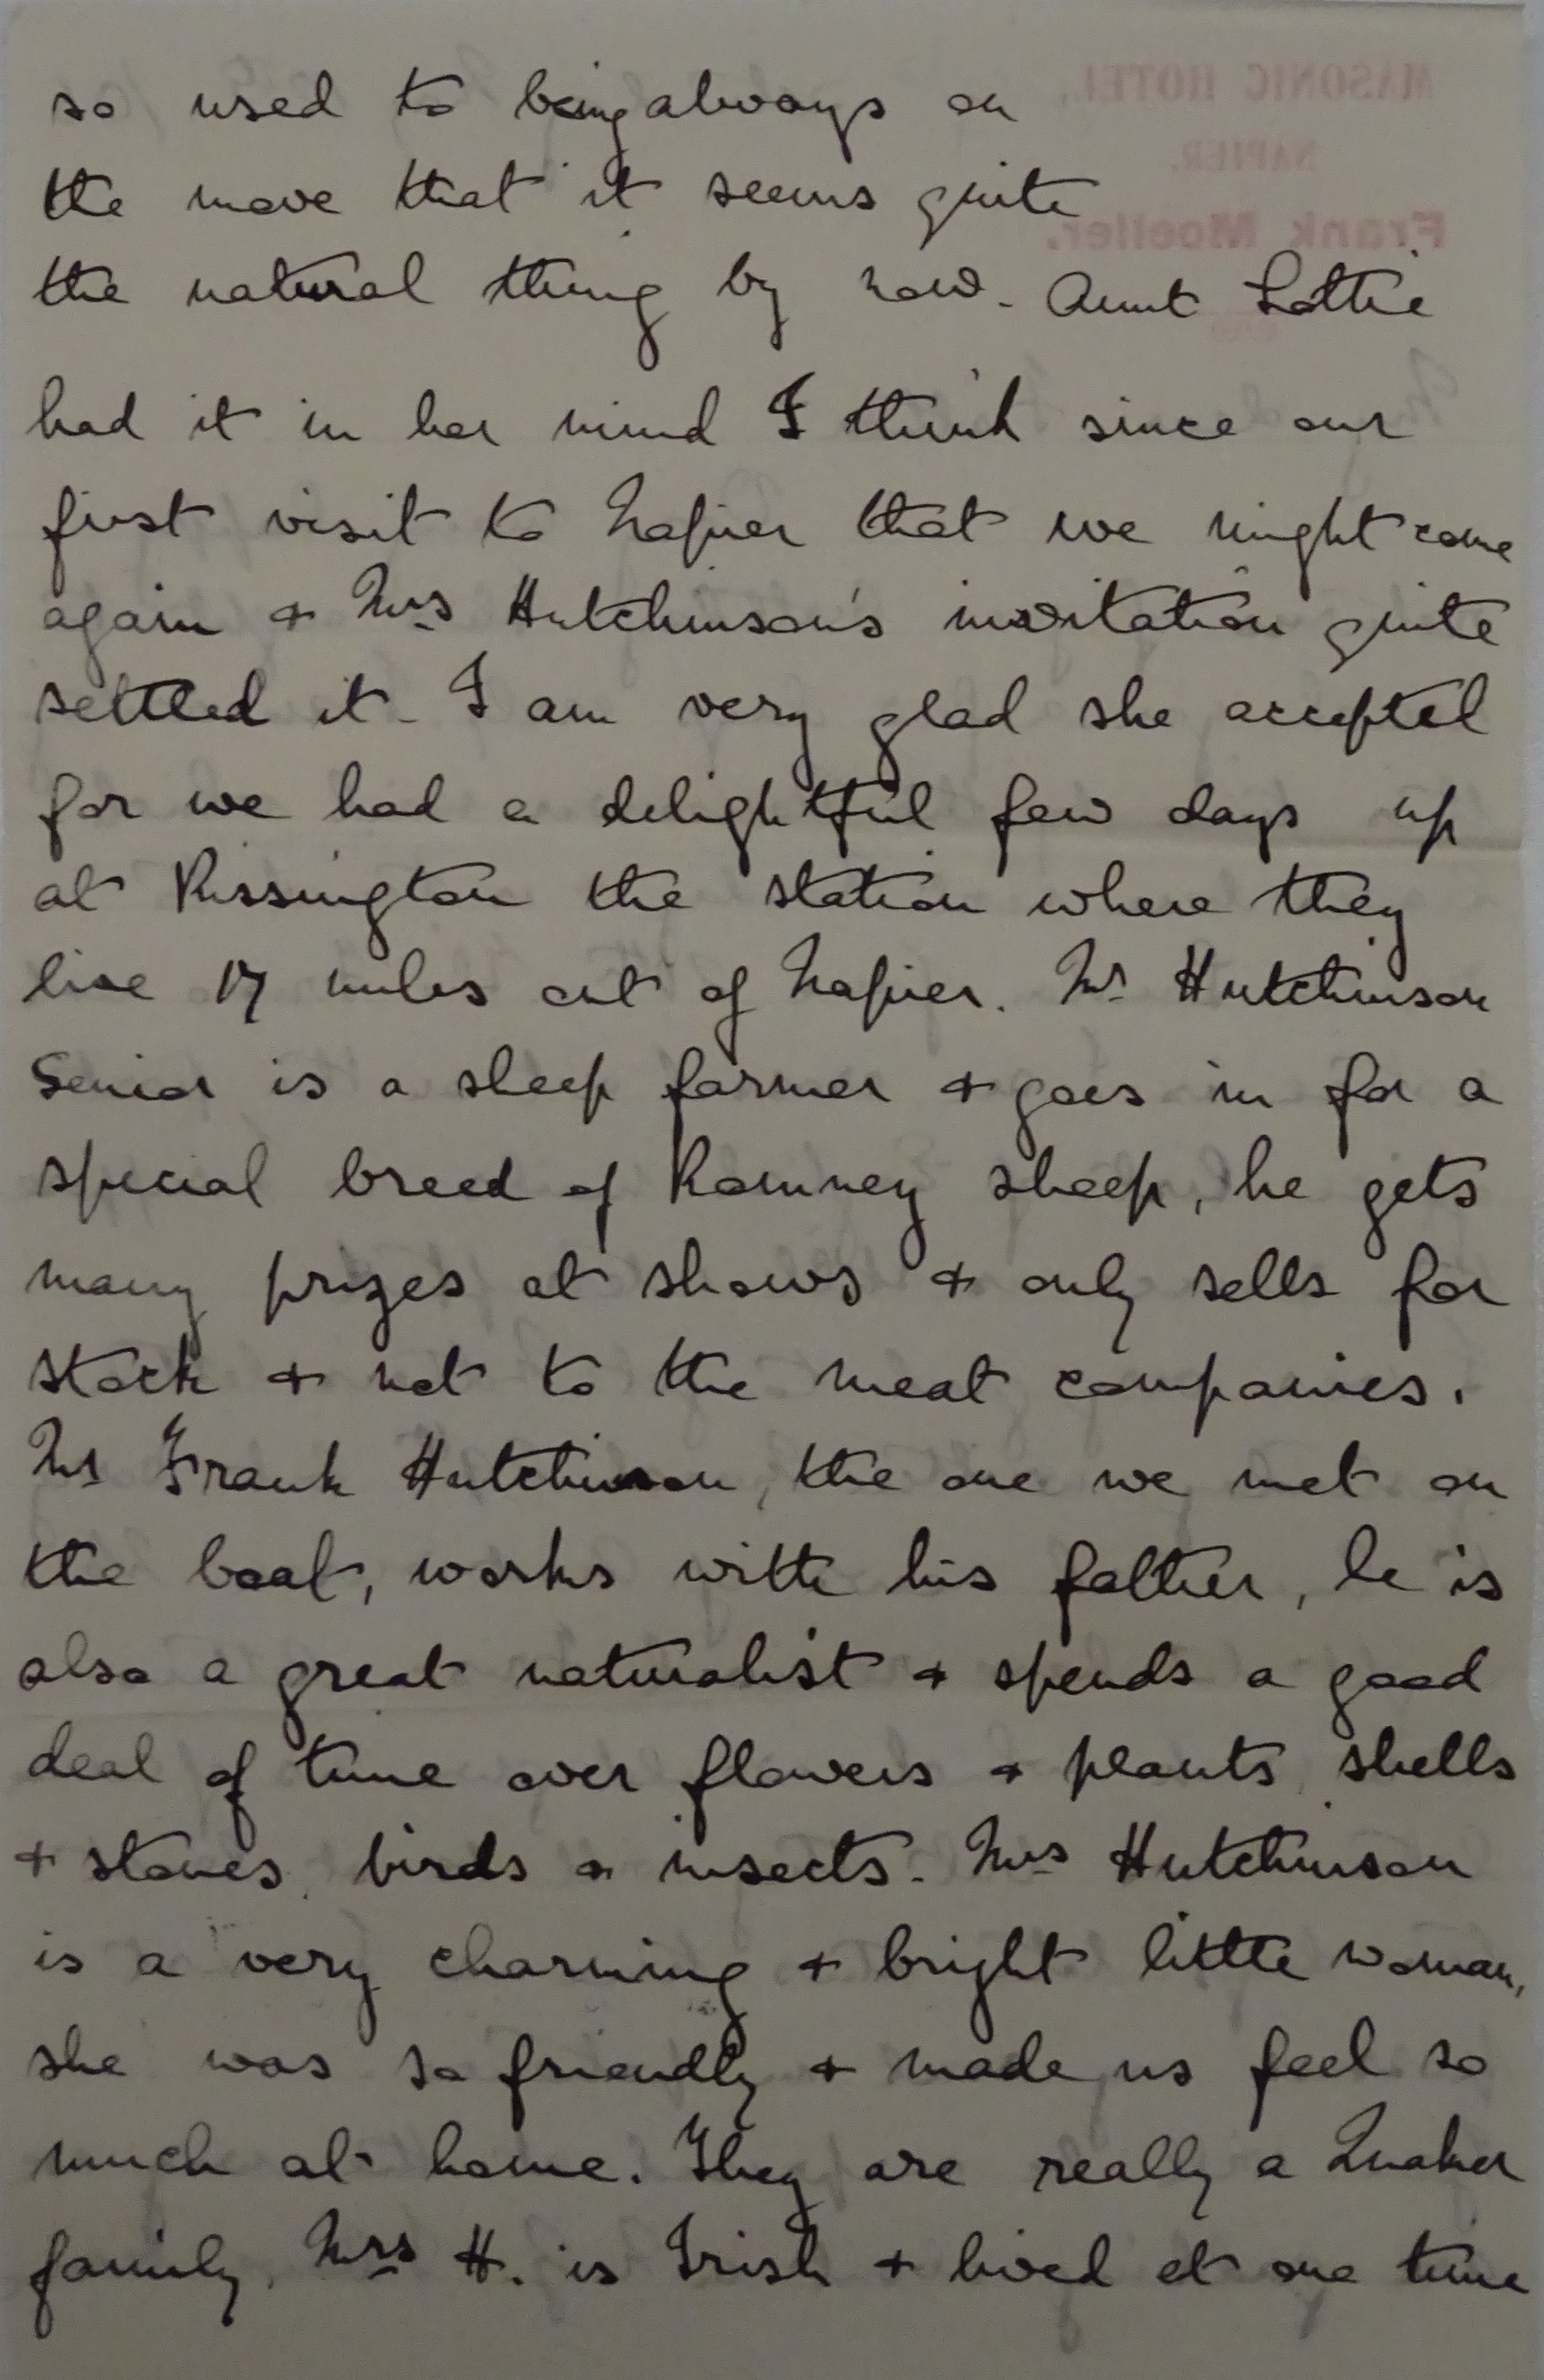 MASONIC HOTEL,
NAPIER.
Frank Moeller.
so used to being always on
the move that it seems quite
the natural thing by now. Aunt Lottie
had it in her mind I think since our
first visit to Napier that we might come
again + Mrs Hutchinson's invitation quite
settled it. I am very glad she accepted
for we had a delightful few days up
at Rissington the station where they
live 17 miles out of Napier. Mr Hutchinson
Senior is a sheep farmer + goes in for a
special breed of Romney sheep, he gets
many prizes at shows + only sells for
stock + not to the meat companies.
Mr Frank Hutchinson, the one we met on
the boat, works with his father, he is
also a great naturalist + spends a good
deal of time over flowers + plants, shells
+ stones, birds + insects. Mrs Hutchinson
is a very charming + bright little woman,
she was so friendly + made us feel so
much at home. They are really a Quaker
family, Mrs H. is Irish + lived at one time